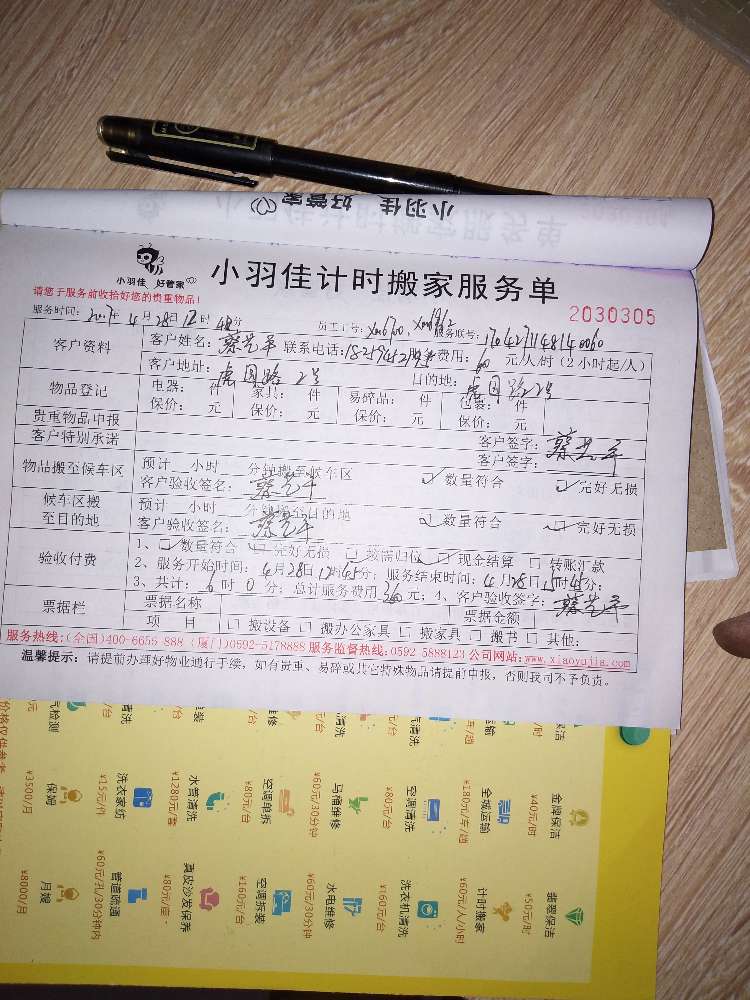 小羽佳 好管家
小羽佳 好管家
小羽佳计时搬家服务单
请您于服务前收拾好您的贵重物品!
2030305
服务时间: 2017年4月28日12时45分 员工工号: 服务账号:
客户资料 客户姓名: 蔡艺平 联系电话: 费用: 60 元/人/时(2小时起/人)
客户地址: 虎园路2号 目的地: 虎园路22号
物品登记 电器: 件 家具: 件 易碎品: 件 包装: 件
保价: 元 保价: 元 保价: 元 保价: 元
贵重物品申报 客户签字: 蔡艺平
客户特别承诺 客户签字:
物品搬至候车区 预计 小时 分钟搬至候车区
客户验收签名: 蔡艺平 ☑ 数量符合 ☑ 完好无损
候车区搬至目的地 预计 小时 分钟搬至目的地
客户验收签名: 蔡艺平 ☑ 数量符合 ☑ 完好无损
验收付费 1、☑ 数量符合 ☑ 完好无损 □ 按需归位 ☑ 现金结算 □ 转账汇款
2、服务开始时间: 4月28日12时45分; 服务结束时间: 4月28日15时45分;
3、共计: 6时0分; 总计服务费用360元; 4、客户验收签字: 蔡艺平
票据栏 票据名称 票据金额
项 目 □ 搬设备 □ 搬办公家具 □ 搬家具 □ 搬书 □ 其他:
服务热线:(全国)400-6655-888 (厦门)0592-5178888 服务监督热线:0592 5888123 公司网站:www.xiaoyujia.com
温馨提示: 请提前办理好物业通行手续, 如有贵重、易碎或其它特殊物品请提前申报, 否则我司不予负责。
翡翠保洁 ¥50元/时
计时搬家 ¥60元/人/小时
洗衣机清洗 ¥160元/台
水电维修 ¥60元/30分钟
空调拆装 ¥160元/台
真皮沙发保养
管道疏通 ¥60元/孔/30分钟内
月嫂 ¥8000/月
金牌保洁 ¥40元/时
全城运输 ¥180元/车/趟
空调清洗 ¥80元/台
马桶维修 ¥60元/30分钟
空调单拆 ¥80元/台
水管清洗 ¥1280元/套
洗衣家纺 ¥15元/件
保姆 ¥3500/月